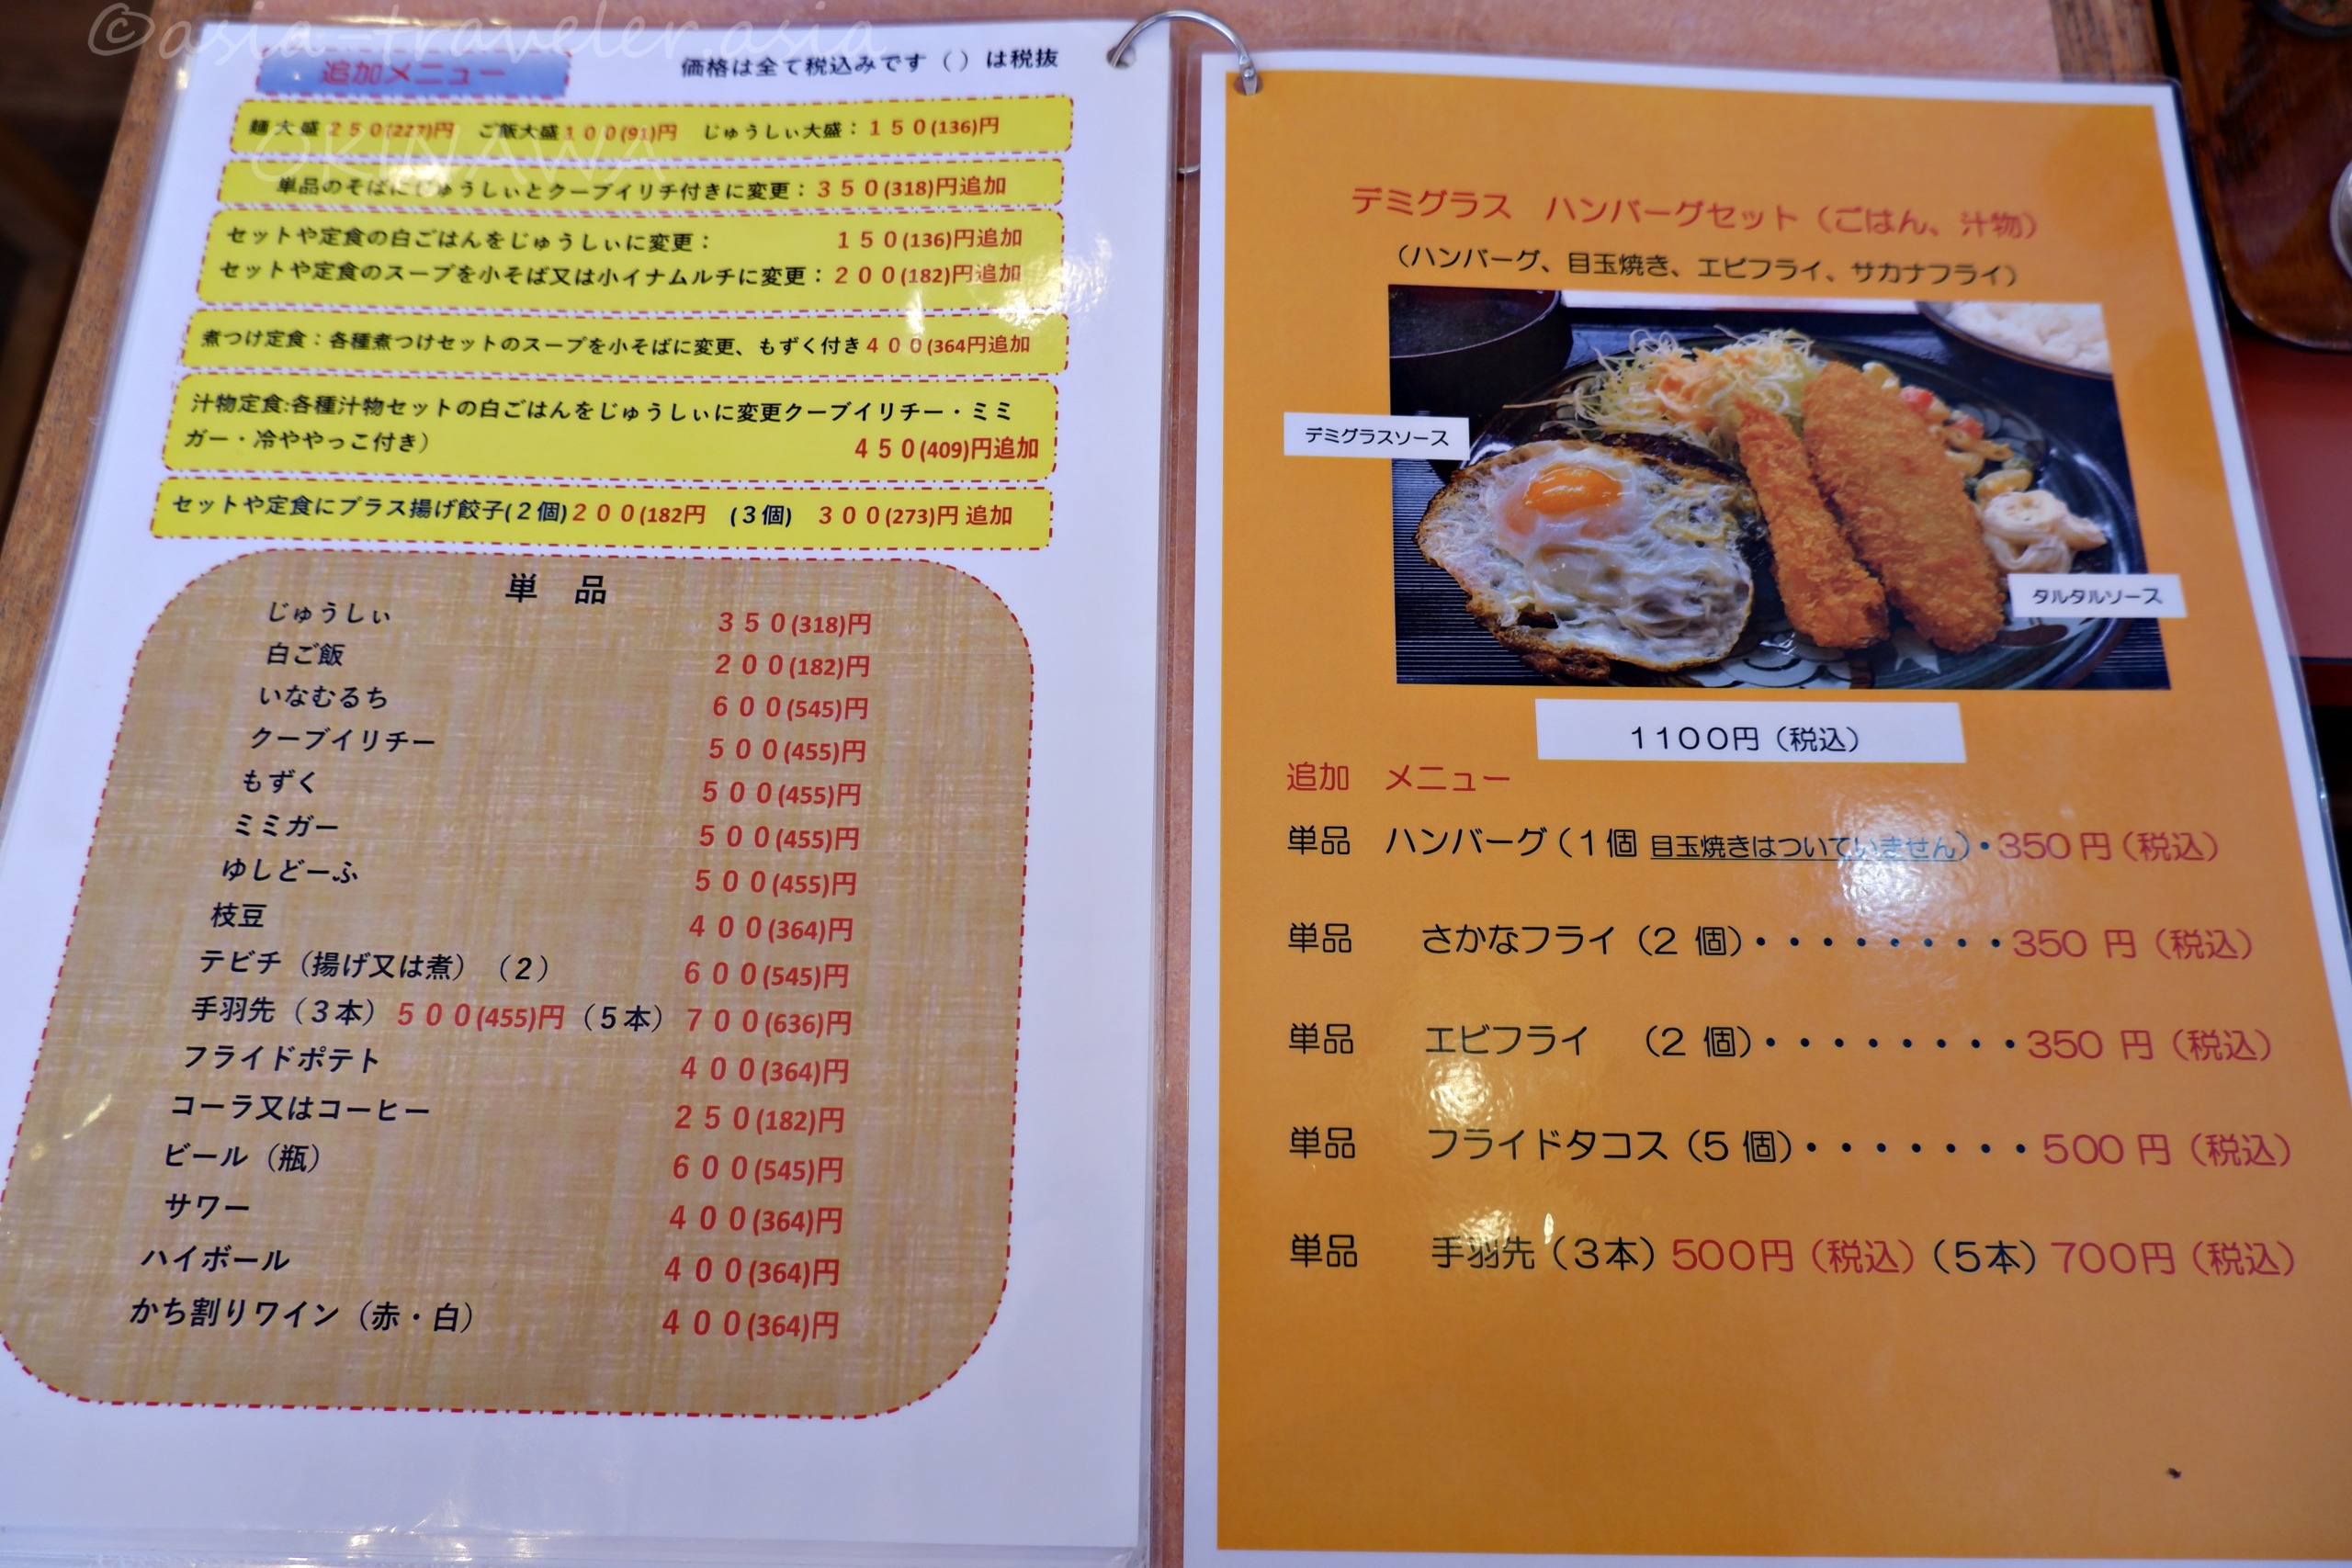 ©asia-traveler.asia
OKINAWA
追加メニュー
価格は全て税込みです（）は税抜
麺大盛２５０(227)円　ご飯大盛１００(91)円　じゅうしぃ大盛：１５０(136)円
単品のそばにじゅうしぃとクーブイリチ付きに変更：３５０(318)円追加
セットや定食の白ごはんをじゅうしぃに変更：１５０(136)円追加
セットや定食のスープを小そば又は小イナムルチに変更：２００(182)円追加
煮つけ定食：各種煮つけセットのスープを小そばに変更、もずく付き４００(364円追加
汁物定食:各種汁物セットの白ごはんをじゅうしぃに変更クーブイリチー・ミミ
ガー・冷ややっこ付き）　４５０(409)円追加
セットや定食にプラス揚げ餃子(２個)２００(182円　(３個)　３００(273)円 追加
単　品
じゅうしぃ　３５０(318)円
白ご飯　２００(182)円
いなむるち　６００(545)円
クーブイリチー　５００(455)円
もずく　５００(455)円
ミミガー　５００(455)円
ゆしどーふ　５００(455)円
枝豆　４００(364)円
テビチ（揚げ又は煮）（2）　６００(545)円
手羽先（３本）５００(455)円（５本）７００(636)円
フライドポテト　４００(364)円
コーラ又はコーヒー　２５０(182)円
ビール（瓶）　６００(545)円
サワー　４００(364)円
ハイボール　４００(364)円
かち割りワイン（赤・白）　４００(364)円
デミグラス　ハンバーグセット（ごはん、汁物）
（ハンバーグ、目玉焼き、エビフライ、サカナフライ）
デミグラスソース
タルタルソース
1100円（税込）
追加　メニュー
単品　ハンバーグ（１個 目玉焼きはついていません）・350 円（税込）
単品　さかなフライ（２ 個）・・・・・・・・350 円（税込）
単品　エビフライ　（２ 個）・・・・・・・・350 円（税込）
単品　フライドタコス（5 個）・・・・・・・500 円（税込）
単品　手羽先（３本）500円（税込）（５本）700円（税込）